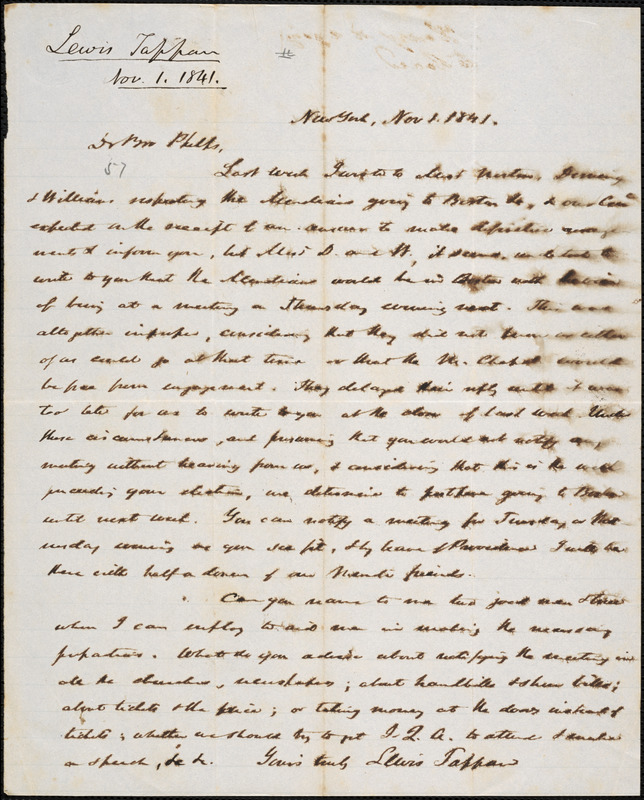 Lewis Tappan
Nov. 1. 1841.
New York, Nov 1. 1841.
Dr Bro Phelps,
57
Last week I wrote to Messrs Norton, Deming
& Williams respecting the Mendians going to Boston &c, & our Comee
expected on the receipt of an answer to make definitive arrange-
ments & inform you, but Messrs D. and W, it seems, undertook to
write to you that the Mendians would be in Boston with the view
of being at a meeting on Thursday evening next. This was
altogether improper, considering that they did not know as either
of us could go at that time or that the M. Chapel would
be free from engagement. They delayed their reply until it was
too late for us to write to you at the close of last week. Under
these circumstances, and presuming that you would not notify any
meeting without hearing from us, & considering that this is the week
preceding your election, we determine to postpone going to Boston
until next week. You can notify a meeting for Tuesday or Wed-
nesday evening as you see fit, & by leave of Providence I will be
there with half a dozen of our Mendi friends.
Can you name to me two good men & true
whom I can employ to aid me in making the necessary
preparations. What do you advise about notifying the meeting in
all the churches, newspapers; about handbills & show bills;
about tickets & the price; or taking money at the doors instead of
tickets; whether we should try to get J. Q. A. to attend & make
a speech, &c &c. Yours truly Lewis Tappan